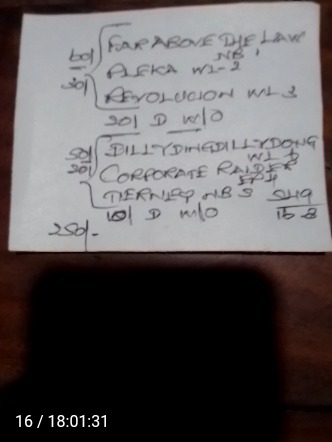 60/ FAR ABOVE THE LAW
NB 1
30/ ALEKA W1-2
REVOLUCION W1 3
20/ D W/O
50/ DILLYDINGDILLYDONG
20/ CORPORATE RAIDER
TIERNEY NB 5 549
10/ D W/O
250/-
16 / 18:01:31